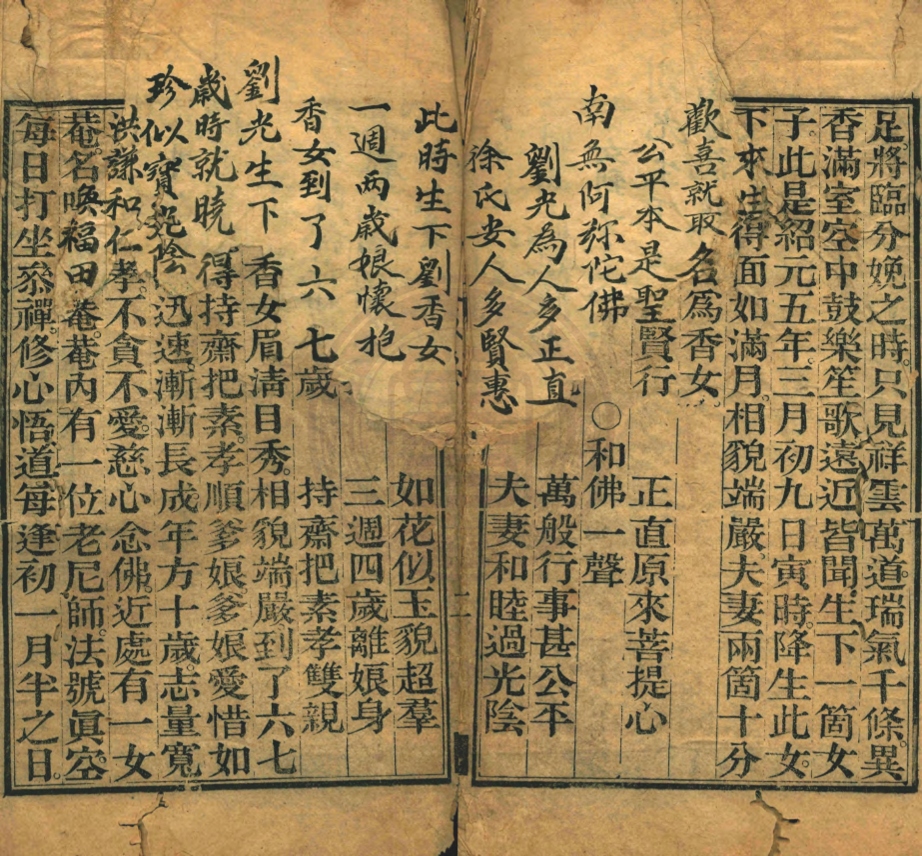 足。將臨分娩之時。只見祥雲萬道。瑞氣千條。異
香滿室。空中鼓樂笙歌。遠近皆聞。生下一箇女
子。此是紹元五年。三月初九日寅時。降生此女。
下來生得面如滿月。相貌端嚴。夫妻兩箇十分
歡喜就取名爲香女。
公平本是聖賢行 正直原來菩提心
南無阿弥陀佛 〇和佛一聲
劉光為人多正直 萬般行事甚公平
徐氏安人多賢惠 夫妻和睦過光陰
此時生下劉香女 如花似玉貌超羣
一週兩歲娘懷抱 三週四歲離娘身
香女到了六七歲 持齋把素孝雙親
劉光生下香女眉清目秀。相貌端嚴。到了六七
歲時就曉得持齋把素。孝順爹娘。爹娘愛惜如
珍似寶光陰迅速。漸漸長成年方十歲。志量寬
洪謙和仁孝。不貪不愛。慈心念佛。近處有一女
菴。名喚福田菴。菴內有一位老尼師。法號眞空。
每日打坐叅禪。修心悟道。每逢初一月半之日。